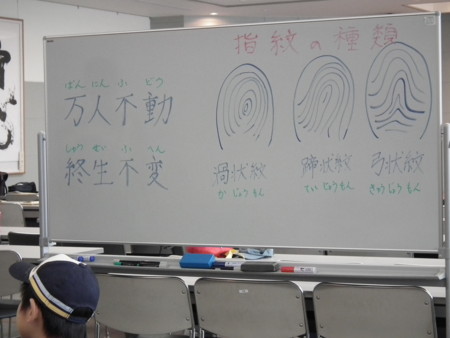 指紋の種類
ばん にん ふ どう
万人不動
しゅう せい ふ へん
終生不変
渦状紋
か じょう もん
蹄状紋
てい じょう もん
弓状紋
きゅう じょう もん